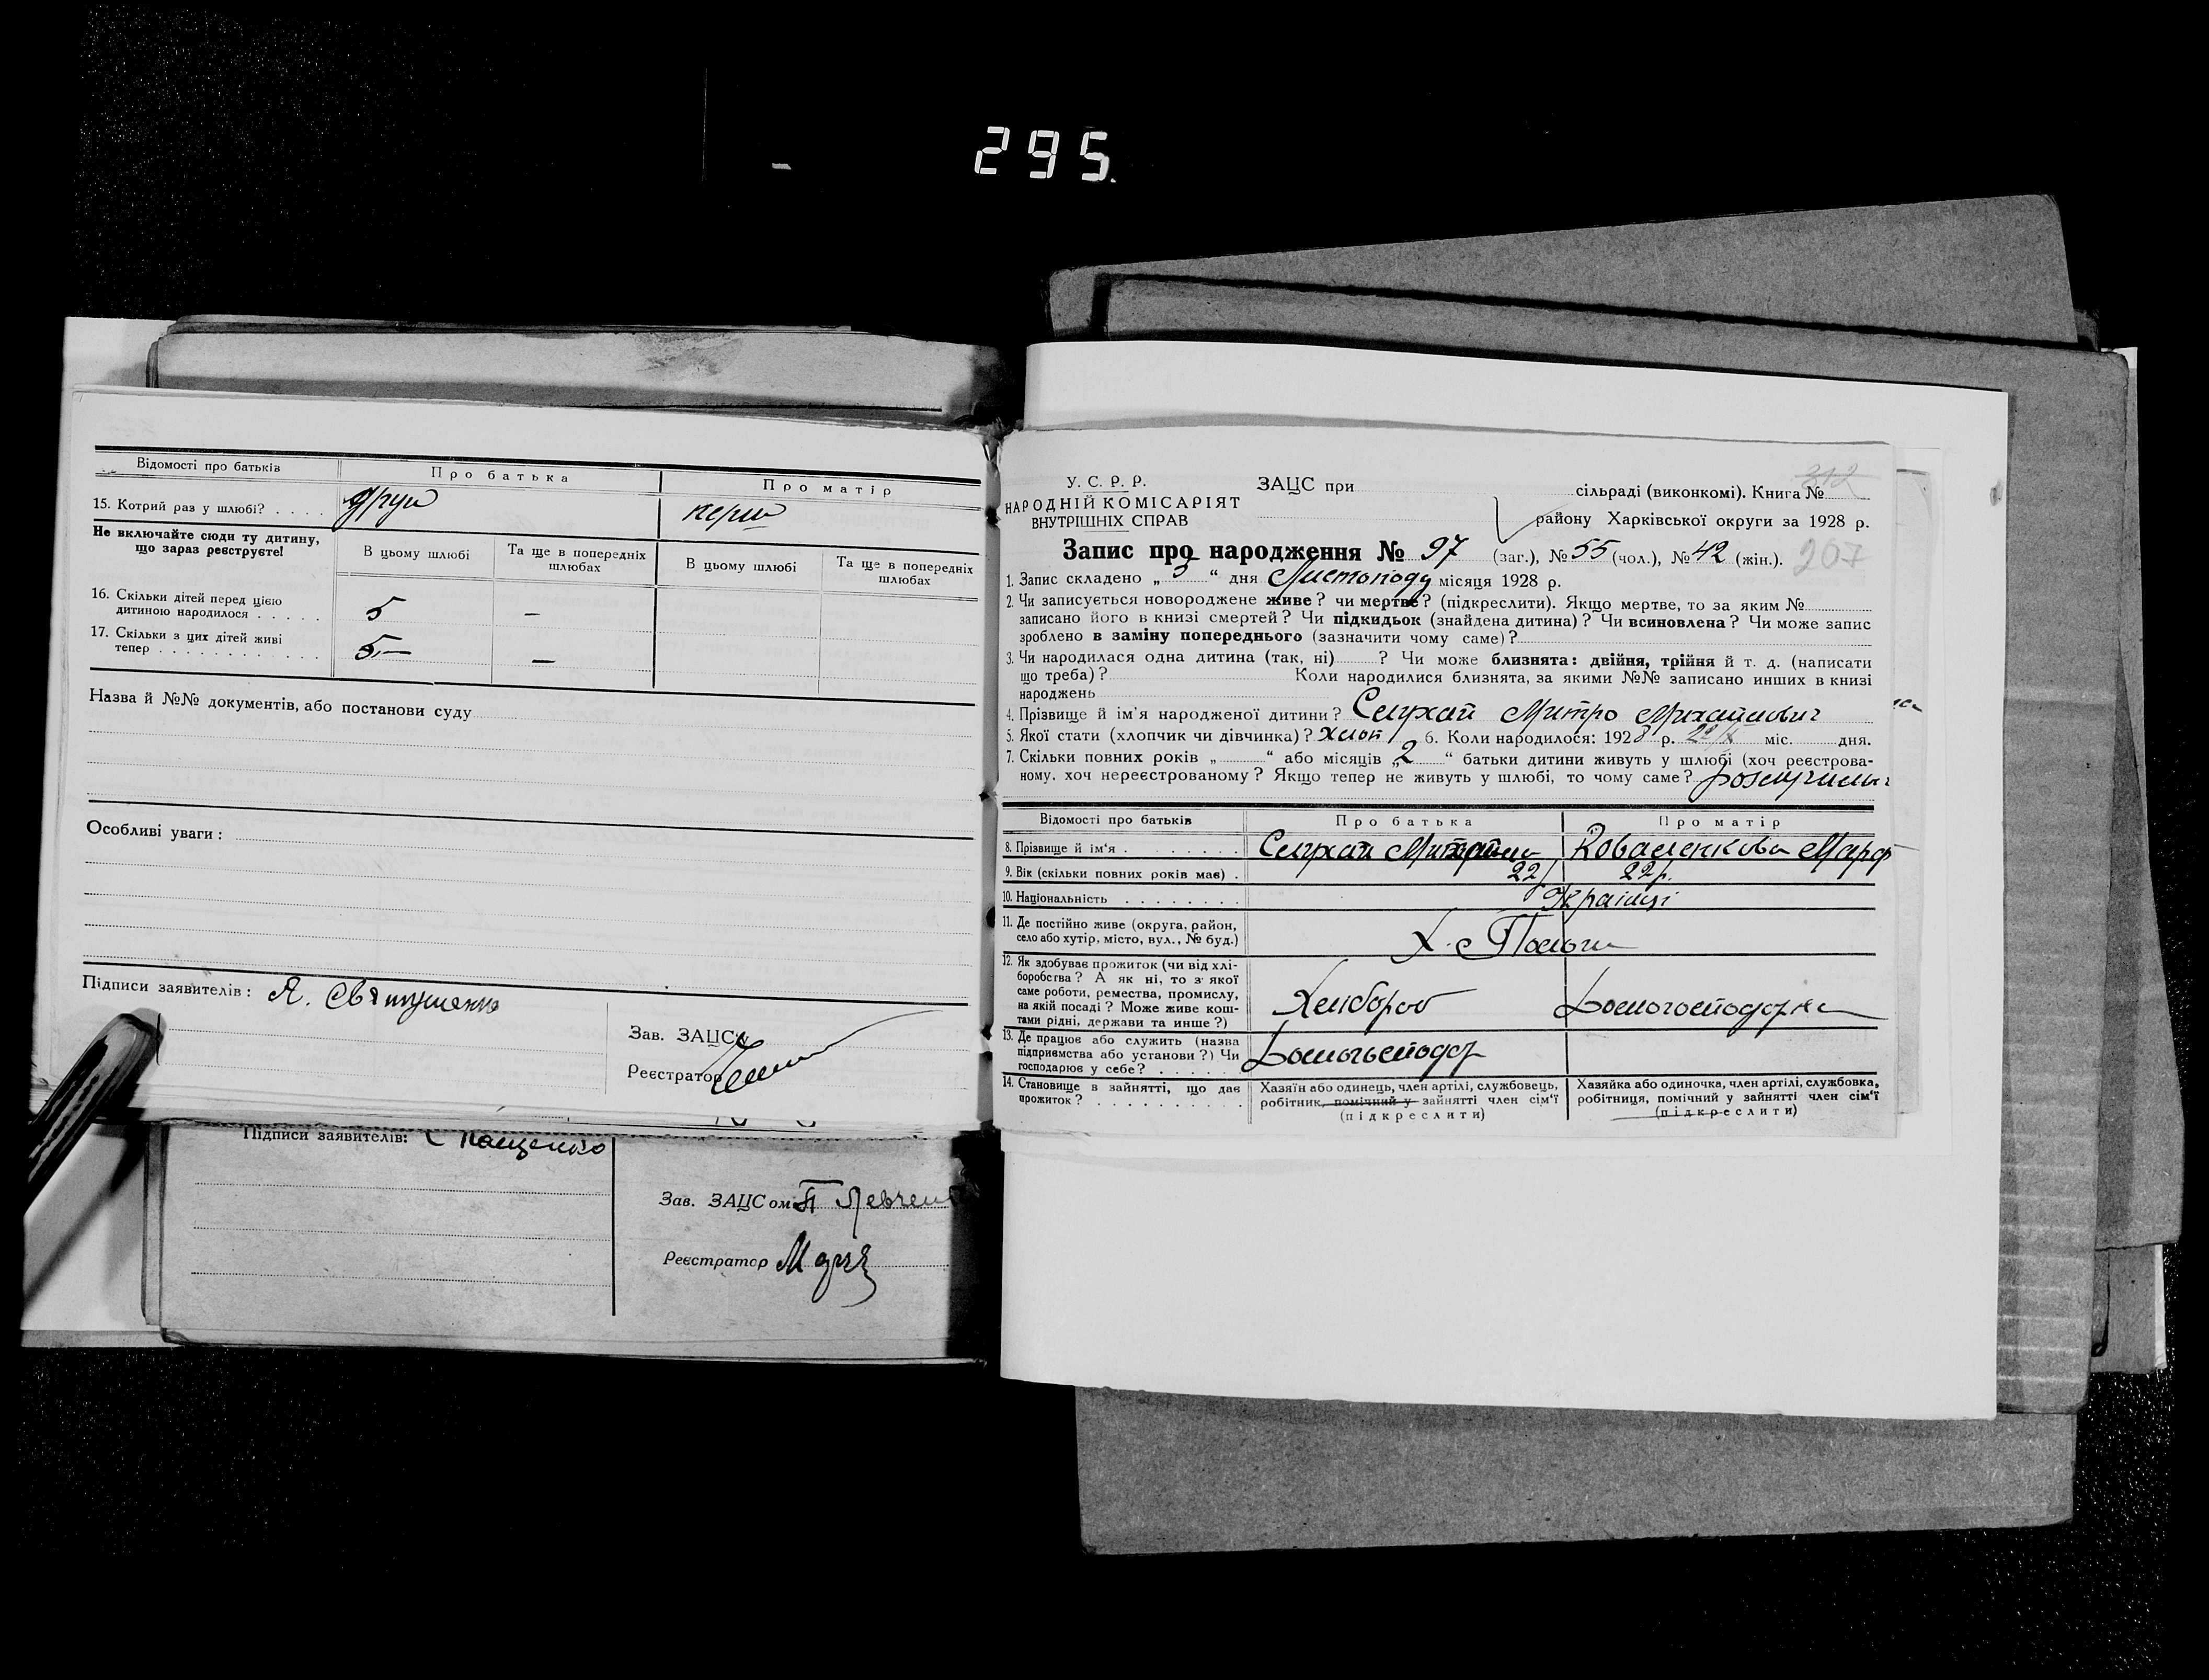 295.
Відомості про батьків
Про батька
Про матір
15. Котрий раз у шлюбі? . . . .
други
перш
Не включайте сюди ту дитину,
що зараз реєструєте!
В цьому шлюбі
Та ще в попередніх
шлюбах
В цьому шлюбі
Та ще в попередніх
шлюбах
16. Скільки дітей перед цією
дитиною народилося . . . . .
5
–
17. Скільки з цих дітей живі
тепер . . . . . . . . . . . .
5–
–
Назва й №№ документів, або постанови суду
Особливі уваги :
Підписи заявителів :
Зав. ЗАЦС
Реєстратор
Підписи заявителів:
Зав. ЗАЦСом
Реєстратор
У. С. Р. Р.
НАРОДНІЙ КОМІСАРІЯТ
ВНУТРІШНІХ СПРАВ
ЗАЦС при
сільраді (виконкомі). Книга №
312
району Харківської округи за 1928 р.
Запис про народження № 97 (заг.), № 55 (чол.), № 42 (жін.).
207
1. Запис складено „ 3 “ дня Листопаду місяця 1928 р.
2. Чи записується новороджене живе? чи мертве? (підкреслити). Якщо мертве, то за яким №
записано його в книзі смертей? Чи підкидьок (знайдена дитина)? Чи всиновлена? Чи може запис
зроблено в заміну попереднього (зазначити чому саме)?
3. Чи народилася одна дитина (так, ні) ? Чи може близнята: двійня, трійня й т. д. (написати
що треба)? Коли народилися близнята, за якими №№ записано инших в книзі
народжень
4. Прізвище й ім'я народженої дитини? Слухай Митро Михайлович
5. Якої статі (хлопчик чи дівчинка)? хлоп 6. Коли народилося: 1928 р. міс. дня.
7. Скільки повних років „ “ або місяців „ 2 “ батьки дитини живуть у шлюбі (хоч реєстрова-
ному, хоч нереєстрованому? Якщо тепер не живуть у шлюбі, то чому саме?
Відомості про батьків
Про батька
Про матір
8. Прізвище й ім'я . . . . . . . .
Слухай
Коваленкова Марф
9. Вік (скільки повних років має) .
22
22 р.
10. Національність . . . . . . . .
Українці
11. Де постійно живе (округа, район,
село або хутір, місто, вул., № буд.)
12. Як здобуває прожиток (чи від хлі-
боробства? А як ні, то з якої
саме роботи, ремества, промислу,
на якій посаді? Може живе кош-
тами рідні, держави та инше?)
Хлібороб
Домогосподарка
13. Де працює або служить (назва
підприємства або установи?) Чи
господарює у себе? . . . . . .
Домогосподар
14. Становище в зайнятті, що дає
прожиток? . . . . . . . . . .
Хазяїн або одинець, член артілі, службовець,
робітник, помічний у зайнятті член сім'ї
(підкреслити)
Хазяйка або одиночка, член артілі, службовка,
робітниця, помічний у зайнятті член сім'ї
(підкреслити)